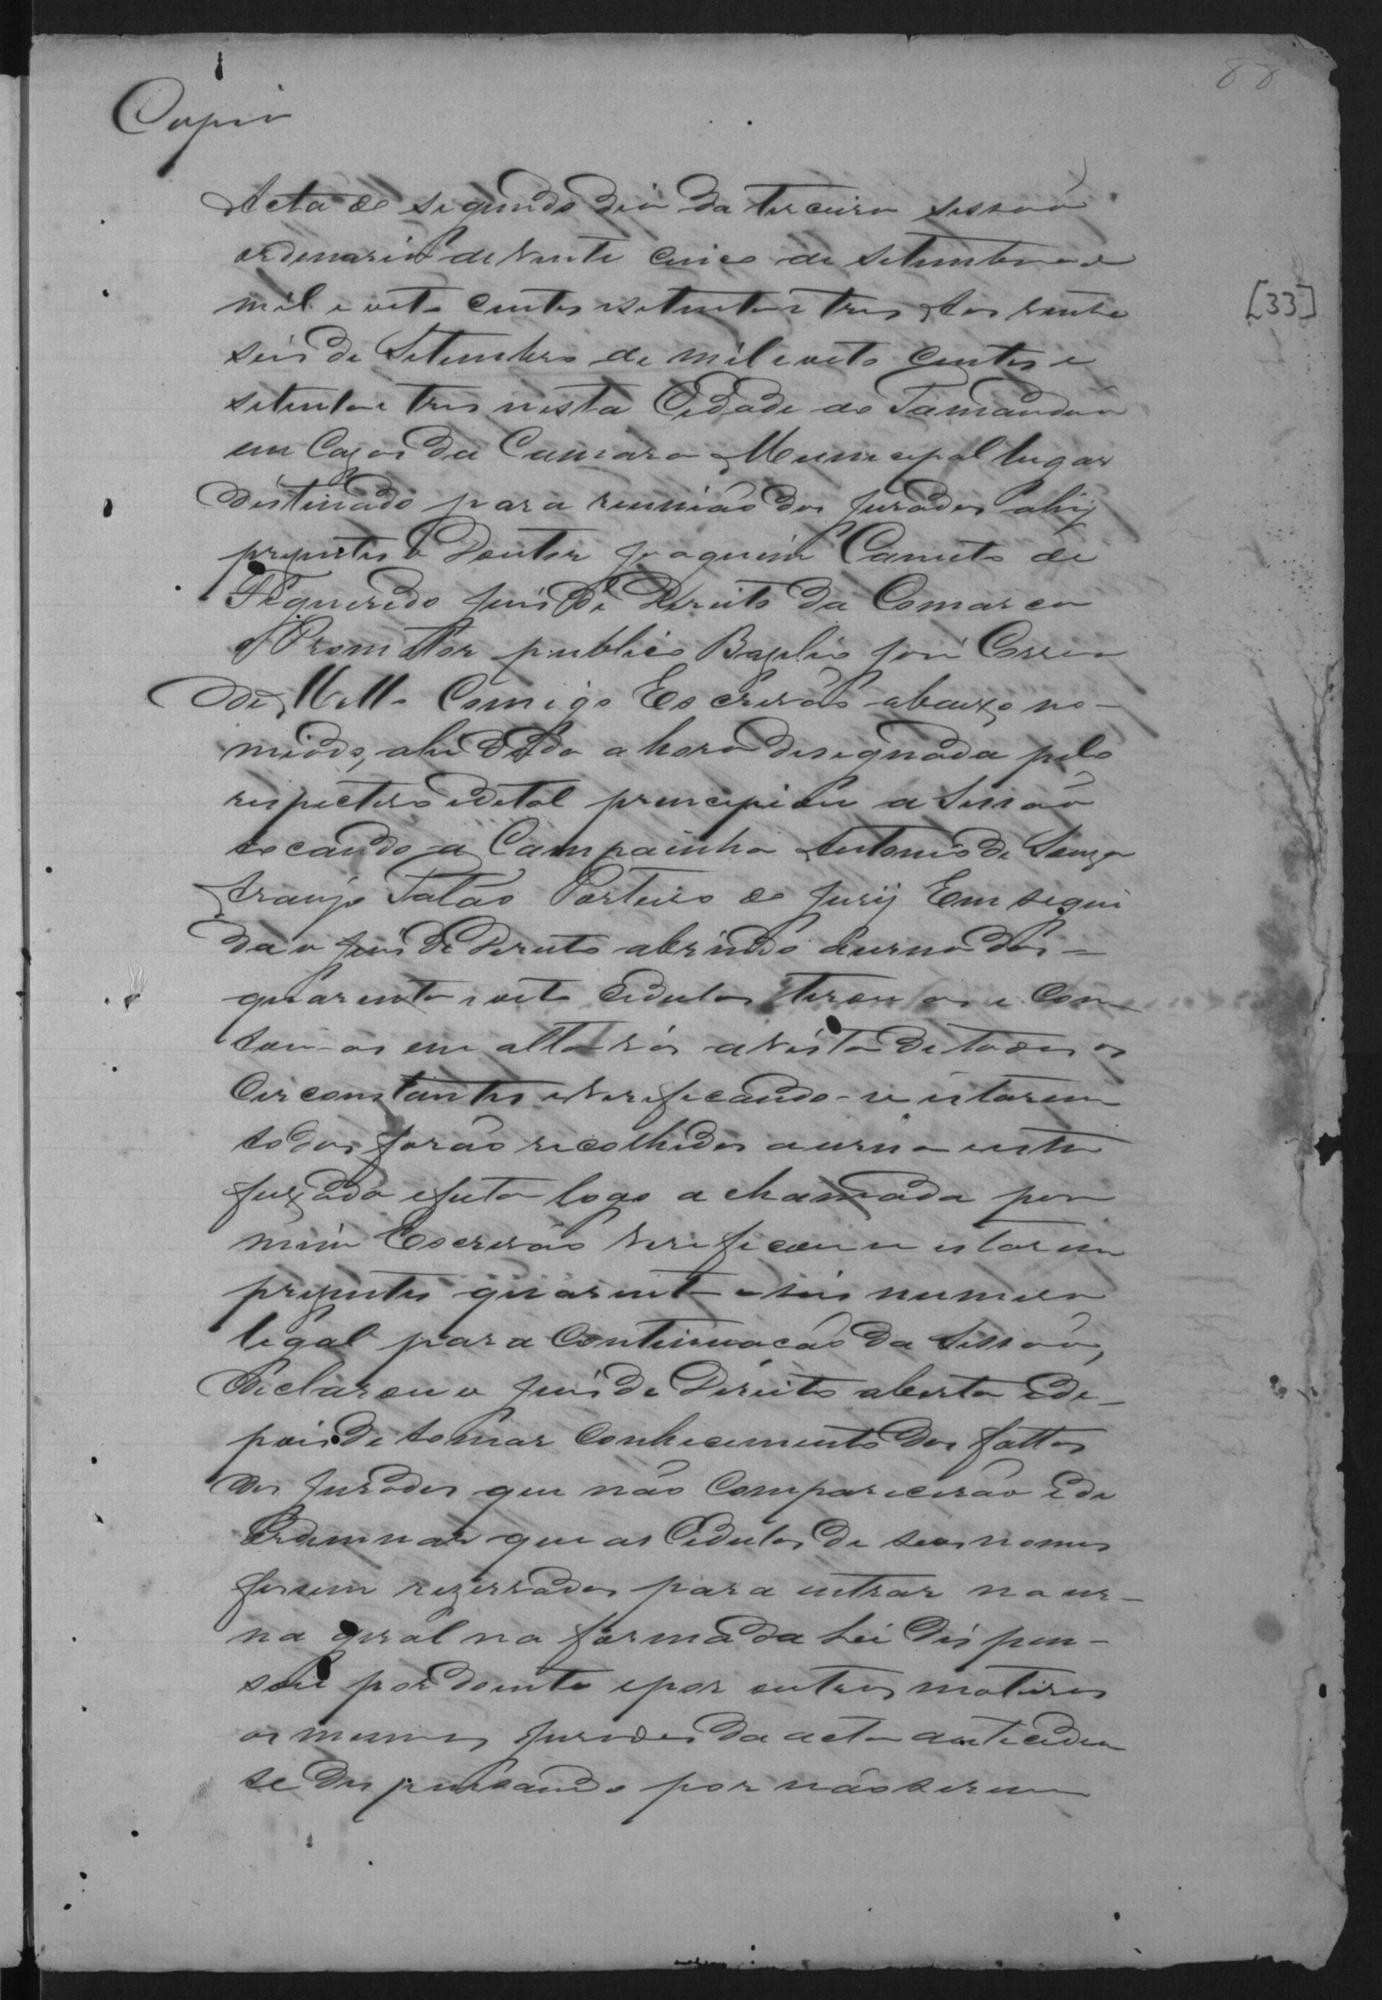 88
Copia
Acta do segundo dia da terceira sessão
ordenaria de vinte cinco de Setembro de
mil e oito centos e setenta e tres Aos vinte
seis de Setembro de mil e oito centos e
setenta e tres nesta Cidade do Tamandua
em Cazas da Camara Municipal lugar
destinado para a reunião dos Jurados ahi
prezentes o Doutor Joaquim Canuto de
Figueredo Juis de Dereito da Comarca
o Promottor publico Bazilio José Correa
de Mello Comigo Escrivão abaixo no-
miado, ahi dada a hora designada pelo
respectivo edital principiou a Sessão
tocando a Campainha Antonio de Souza
Araujo Falão Porteiro do Jury Em segui
da o Juis de Dereito abrindo a urna das
quarenta e oito Cedulas tirou as e Con-
tou-as em alta vós a vista de todos os
Circonstantes e Verificando-se estarem
todas forão recolhidas a urna e esta
fuxada e feita logo a chamada por
mim Escrivão Verificou se estarem
prezentes quarenta e seis numero
legal para a Continuacão da Sessão,
declarou o Juis de Dereito aberta e de-
pois de tomar Conhecimento das faltas
dos Jurados que não Comparecerão e de
Ordennar que as Cedulas de seos nomes
fossem rezervadas para entrar na ur-
na geral na forma da Lei Dispen-
sou por doente e por outros motivos
os mesmos Jurados da acta antceden
te Dispensando por não serem
[33]